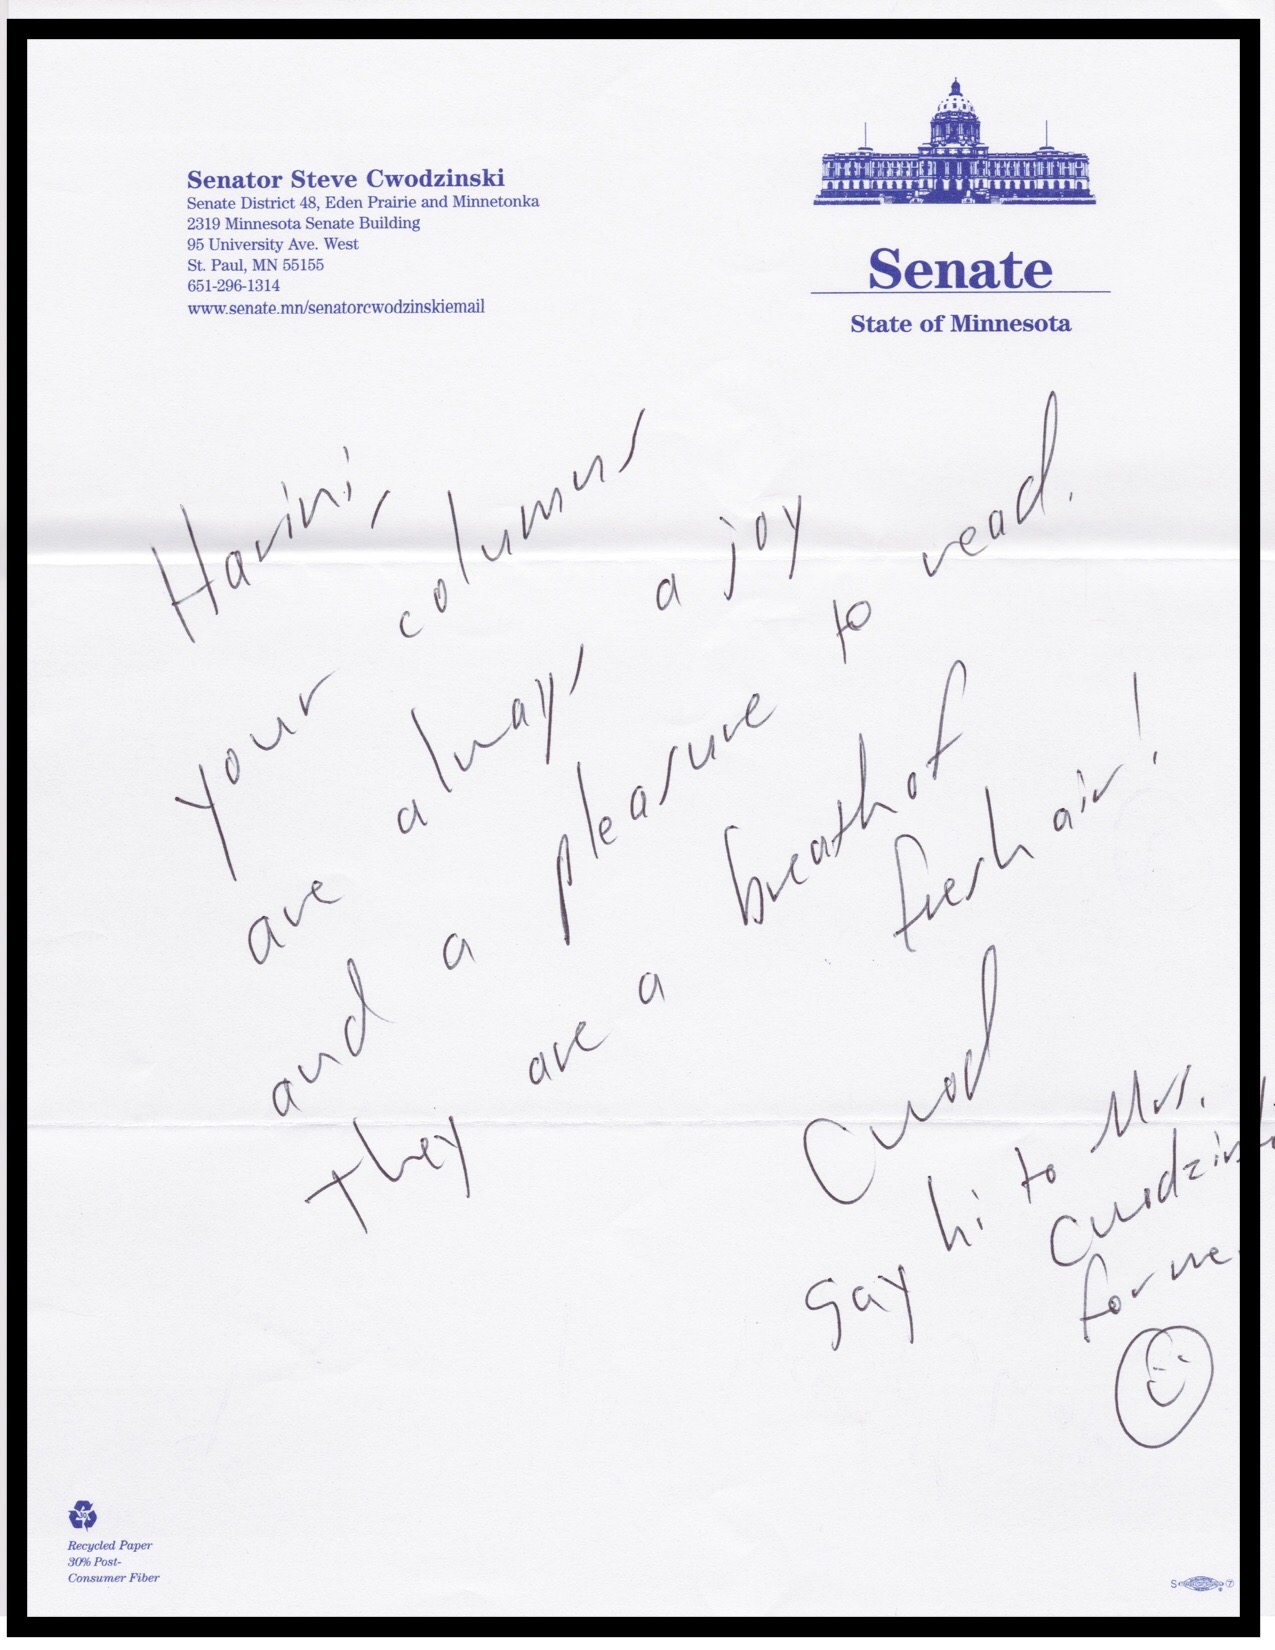 Senator Steve Cwodzinski
Senate District 48, Eden Prairie and Minnetonka
2319 Minnesota Senate Building
95 University Ave. West
St. Paul, MN 55155
651-296-1314
www.senate.mn/senatorcwodzinskiemail
Senate
State of Minnesota
Harini,
Your columns
are always a joy
and a pleasure to read.
They are a breath of
fresh air!
Cwod
Say hi to Mrs.
Cwodzinski
for me.
Recycled Paper
30% Post-
Consumer Fiber